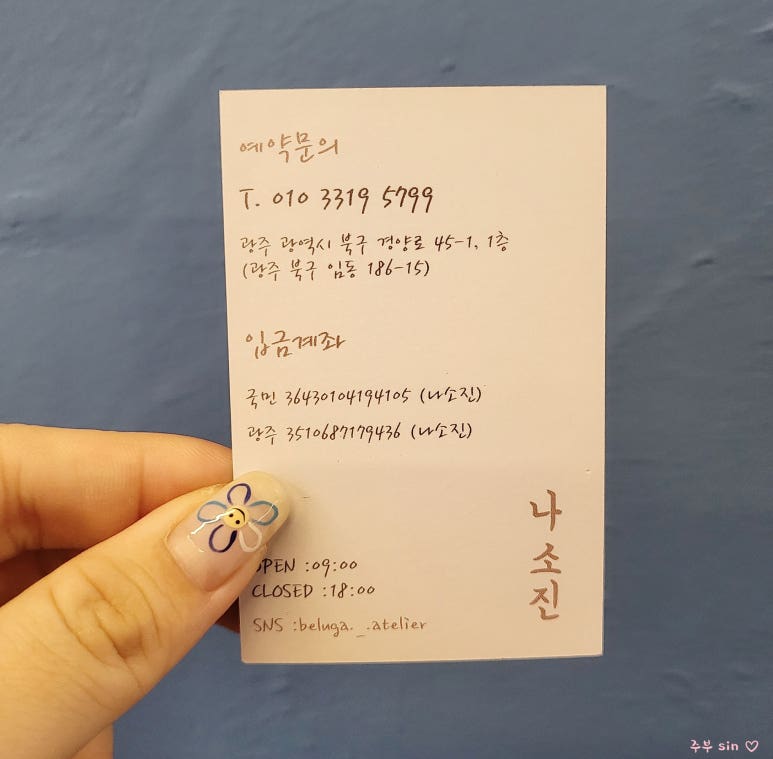 예약문의
T. 010 3319 5799
광주 광역시 북구 경양로 45-1, 1층
(광주 북구 임동 186-15)
입금계좌
국민 36430104194105 (나소진)
광주 3510687179436 (나소진)
나소진
OPEN :09:00
CLOSED :18:00
SNS :beluga._.atelier
주부 sin ♡